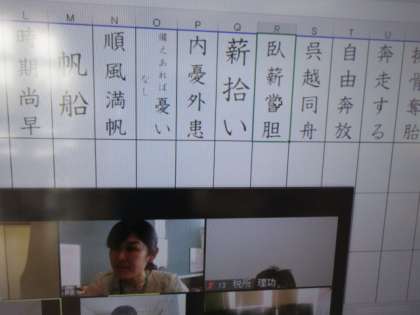 L M N O P Q R S T U
換骨奪胎
奔走する
自由奔放
呉越同舟
臥薪嘗胆
薪拾い
内憂外患
備えあれば憂い
なし
順風満帆
帆船
時期尚早